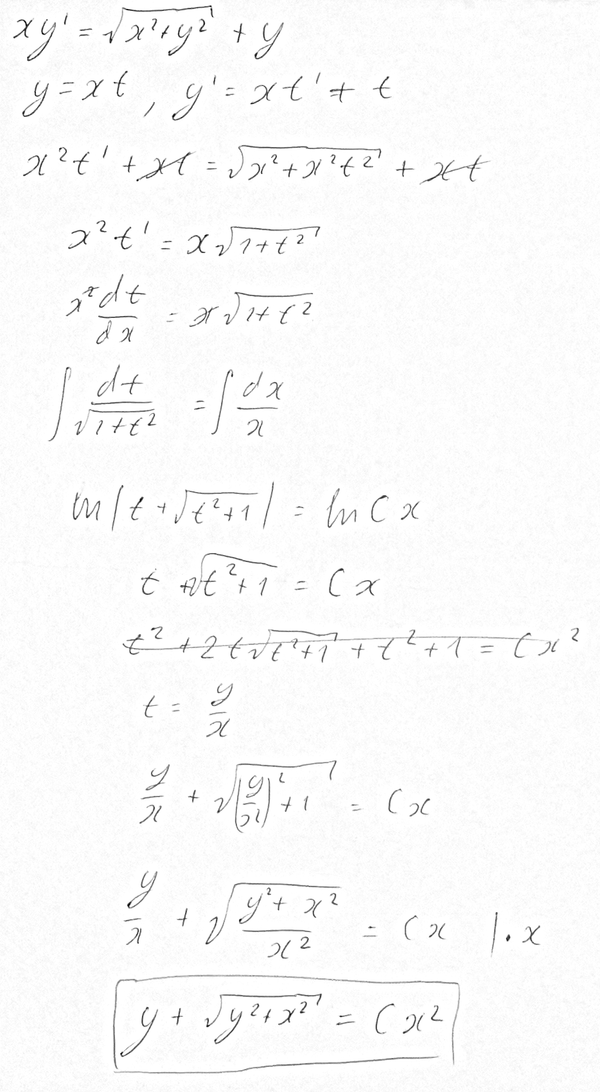 xy' = √(x²+y²) + y
y = xt , y' = xt' + t
x²t' + xt = √(x²+x²t²) + xt
x²t' = x√(1+t²)
x² dt/dx = x√(1+t²)
∫ dt/√(1+t²) = ∫ dx/x
ln|t + √(t²+1)| = ln Cx
t + √(t²+1) = Cx
t² + 2t√(t²+1) + t² + 1 = Cx²
t = y/x
y/x + √((y/x)² + 1) = Cx
y/x + √((y² + x²)/x²) = Cx |·x
y + √(y²+x²) = Cx²